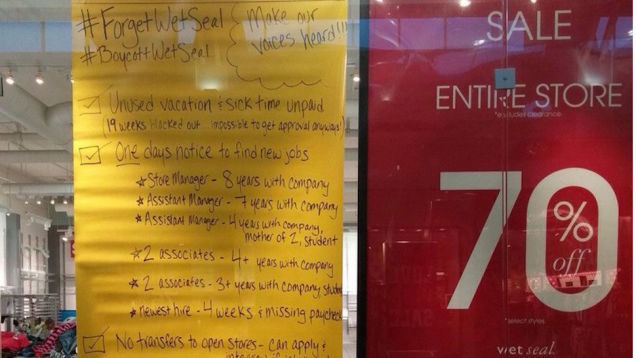 #ForgetWetSeal
#BoycottWetSeal
Make our
voices heard!!!
Unused vacation & sick time unpaid
(19 weeks blacked out impossible to get approval anyways)
One days notice to find new jobs
Store Manager - 8 years with company
Assistant Manager - 7 years with company
Assistant Manager - 4 years with company,
mother of 2, student
2 associates - 4+ years with company
2 associates - 3+ years with company, stude
newest hire - 4 weeks & missing paycheck
No transfers to open stores - can apply &
SALE
ENTIRE STORE
*excludes clearance
70% off
*select styles
wet seal